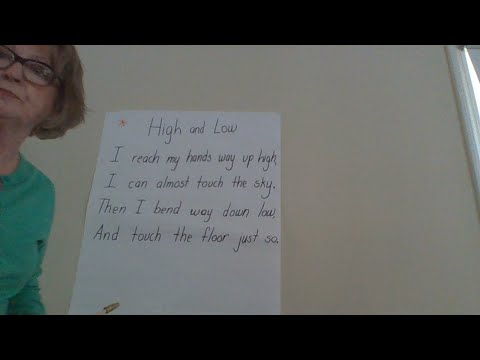 * High and Low
I reach my hands way up high,
I can almost touch the sky.
Then I bend way down low,
And touch the floor just so.